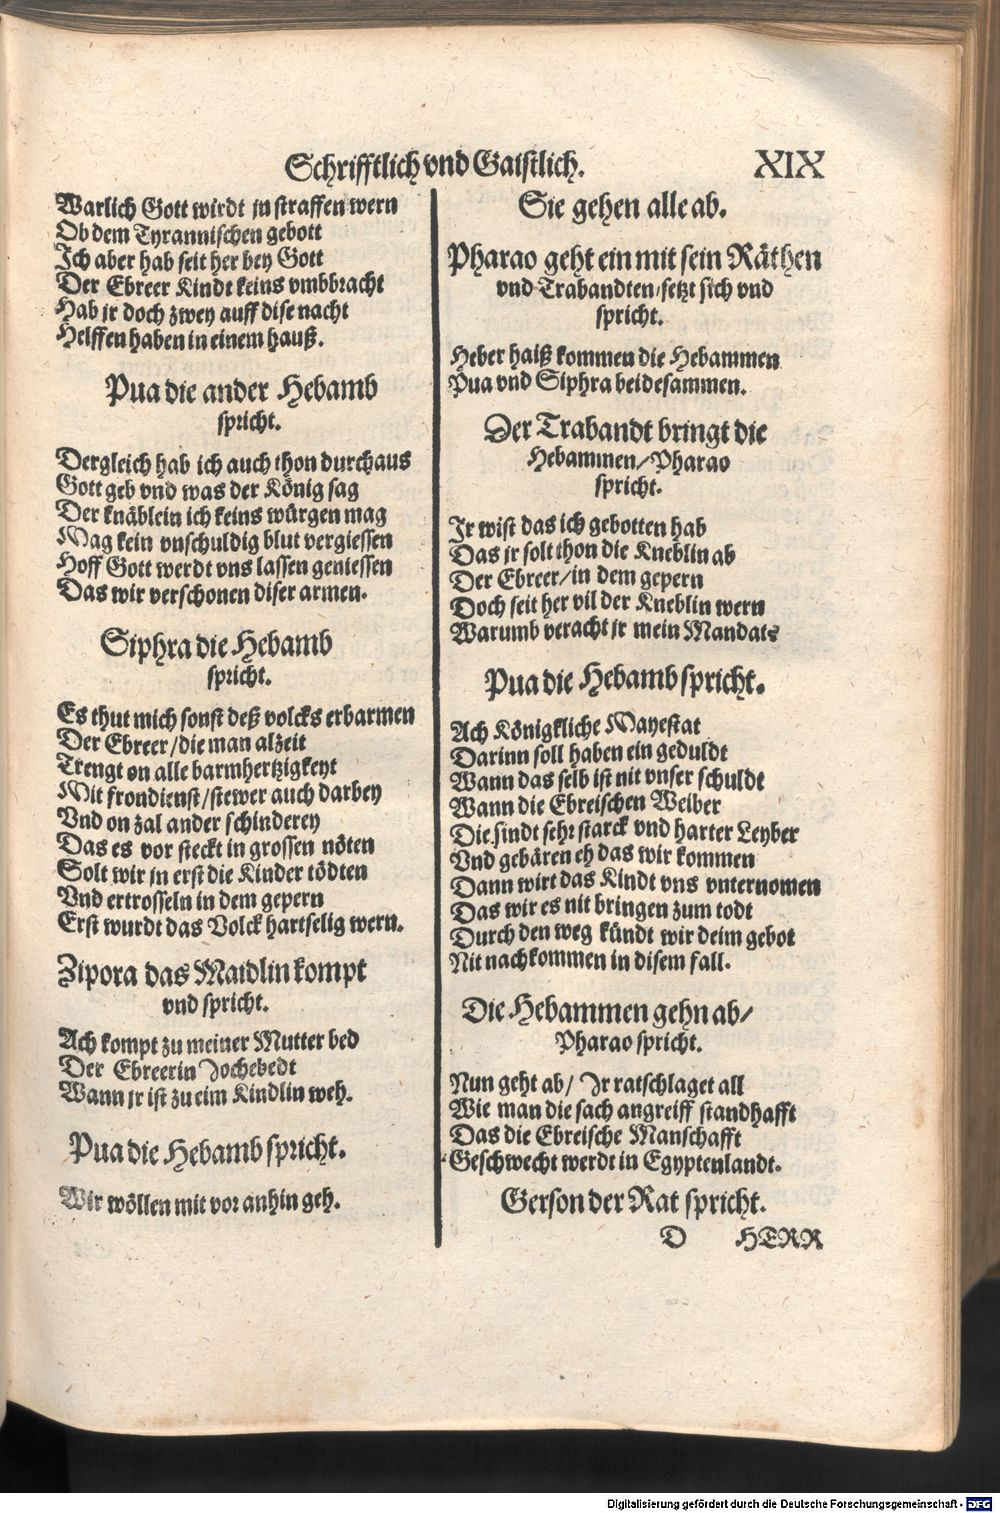 Schrifftlich vnd Gaistlich. XIX
Warlich Gott wirdt jn straffen wern
Ob dem Tyrannischen gebott
Ich aber hab seit her bey Gott
Der Ebreer Kindt keins vmbbracht
Hab jr doch zwey auff dise nacht
Helffen haben in einem hauß.
Pua die ander Hebamb
spricht.
Dergleich hab ich auch thon durchaus
Gott geb vnd was der König sag
Der knäblein ich keins würgen mag
Mag kein vnschuldig blut vergiessen
Hoff Gott werdt vns lassen geniessen
Das wir verschonen diser armen.
Siphra die Hebamb
spricht.
Es thut mich sonst deß volcks erbarmen
Der Ebreer/die man alzeit
Trengt on alle barmhertzigkeyt
Mit frondienst/stewer auch darbey
Vnd on zal ander schinderey
Das es vor steckt in grossen nöten
Solt wir jn erst die Kinder tödten
Vnd ertrosseln in dem gepern
Erst wurdt das Volck hartselig wern.
Zipora das Maidlin kompt
vnd spricht.
Ach kompt zu meiner Mutter bed
Der Ebreerin Jochebedt
Wann jr ist zu eim Kindlin weh.
Pua die Hebamb spricht.
Wir wöllen mit vor anhin geh.
Sie gehen alle ab.
Pharao geht ein mit sein Räthen
vnd Trabandten/setzt sich vnd
spricht.
Heber haiß kommen die Hebammen
Pua vnd Siphra beidesammen.
Der Trabandt bringt die
Hebammen/Pharao
spricht.
Jr wist das ich gebotten hab
Das jr solt thon die Kneblin ab
Der Ebreer/in dem gepern
Doch seit her vil der Kneblin wern
Warumb veracht jr mein Mandats
Pua die Hebamb spricht.
Ach Königkliche Mayestat
Darinn soll haben ein geduldt
Wann das selb ist nit vnser schuldt
Wann die Ebreischen Weiber
Die sindt sehr starck vnd harter Leyber
Vnd gebären eh das wir kommen
Dann wirt das Kindt vns vnternomen
Das wir es nit bringen zum todt
Durch den weg kündt wir deim gebot
Nit nachkommen in disem fall.
Die Hebammen gehn ab/
Pharao spricht.
Nun geht ab/ Jr ratschlaget all
Wie man die sach angreiff standhafft
Das die Ebreische Manschafft
Geschwecht werdt in Egyptenlandt.
Gerson der Rat spricht.
D HERR
Digitalisierung gefördert durch die Deutsche Forschungsgemeinschaft - DFG